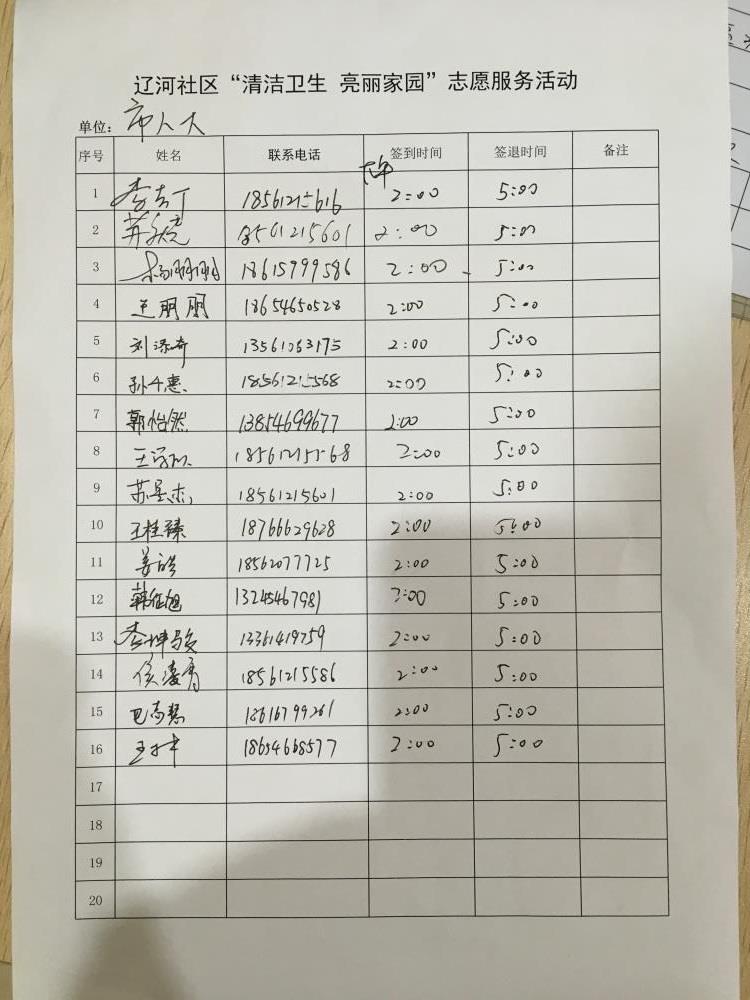 辽河社区“清洁卫生 亮丽家园”志愿服务活动
单位：市人大
序号 姓名 联系电话 签到时间 签退时间 备注
1 18561215616 2:00 5:00
2 18561215601 2:00 5:00
3 杨丽丽 18615999586 2:00 5:00
4 王丽丽 18654650528 2:00 5:00
5 刘添奇 13561063175 2:00 5:00
6 孙千惠 18561215568 2:00 5:00
7 郭怡然 13854699677 2:00 5:00
8 18561215568 2:00 5:00
9 苏星杰 18561215601 2:00 5:00
10 王桂臻 18766629628 2:00 5:00
11 姜皓 18562077725 2:00 5:00
12 13245467981 2:00 5:00
13 李坤骏 13361419759 2:00 5:00
14 侯凌霄 18561215586 2:00 5:00
15 18616799261 2:00 5:00
16 18654668577 2:00 5:00
17
18
19
20